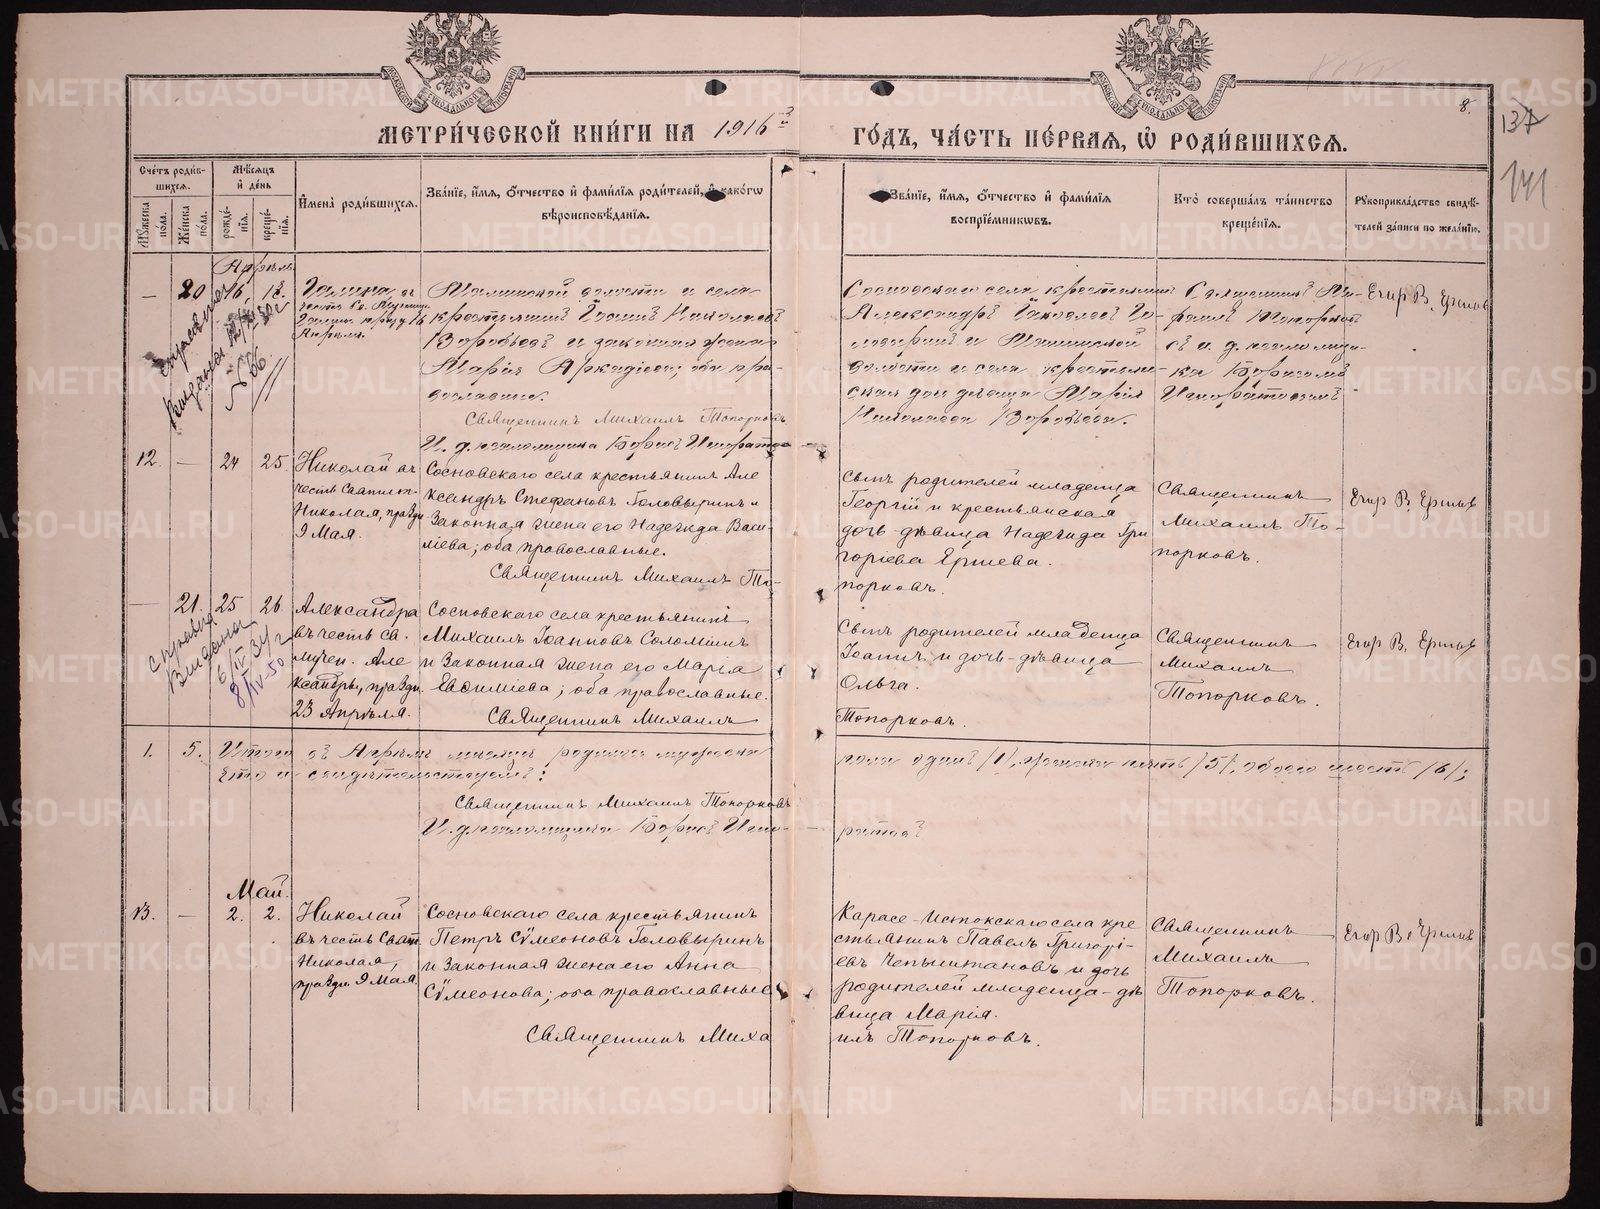 МЕТРИ́ЧЕСКОЙ КНИ́ГИ НА 1916 й ГО́ДЪ, ЧА́СТЬ ПЕ́РВАЯ, Ѡ РОДИ́ВШИХСЯ.
8.
137
141
Сче́тъ роди́в-
шихся.
Мꙋжеска по́ла.
Же́нска по́ла.
Мѣ́сяцъ
и́ де́нь
рожде́-
нія.
креще́-
нія.
И̓мена̀ роди́вшихся.
Зва́нїе, и̓́мя, ѻ̓́тчество и̓ фами́лїя роди́телей, и̓ како́гѡ
вѣроисповѣ́данїя.
Зва́нїе, и̓́мя, ѻ̓́тчество и̓ фами́лїя
воспрїе́мникѡвъ.
Кто̀ соверша́лъ та́инство
креще́нїя.
Рꙋкоприкла́дство свидѣ́-
телей за́писи по жела́нїю.
Апрѣль
—
20
16.
18.
Галина въ
честь Св. Мученицы
Галины празд. 16
Апрѣля.
волости и села
крестьянинъ Іоаннъ Николаевъ
Воробьевъ и законная жена
Марія Аркадіева; оба пра-
вославные.
Священникъ Михаилъ Топорковъ
И. д. псаломщика Борисъ
Сосновскаго села крестьянинъ
Александръ Іаковлевъ Го-
ловыринъ и
волости и села крестьян-
ская дочь дѣвица Марія
Николаева Воробьева.
Священникъ Ми-
хаилъ Топорковъ
съ и. д. псаломщи-
ка Борисомъ
Егор В. Ершов
12.
—
24
25.
Николай въ
честь Святит.
Николая, праздн
9 Мая.
Сосновскаго села крестьянинъ Але
ксандръ Стефановъ Головыринъ и
законная жена его Надежда Васи-
ліева; оба православные.
Священникъ Михаилъ То-
порковъ.
Сынъ родителей младенца
Георгій и крестьянская
дочь дѣвица Надежда Гри
горіева Ершева.
Священникъ
Михаилъ То-
порковъ.
Егор В. Ершов
—
21.
25
26
Александра
въ честь Св.
мучен. Але
ксандры, праздн.
23 Апрѣля.
Сосновскаго села крестьянинъ
Михаилъ Іоанновъ Соломеинъ
и законная жена его Марія
Евѳиміева; оба православные.
Священникъ Михаилъ
Топорковъ.
Сынъ родителей младенца
Іоаннъ и дочь-дѣвица
Ольга.
Священникъ
Михаилъ
Топорковъ.
Егор В. Ершов
справка
выдана
6/IV 34 г
8/IV-50
1.
5.
Итого въ Апрѣлѣ мѣсяцѣ родилось мужеска
пола одинъ /1/, женска пять /5/, обоего шесть /6/;
что и свидѣтельствуемъ:
Священникъ Михаилъ Топорковъ
И. д. псаломщика Борисъ
Май.
13.
—
2.
2.
Николай
въ честь Свят.
Николая,
праздн. 9 Мая
Сосновскаго села крестьянинъ
Петръ Сѵмеоновъ Головыринъ
и законная жена его Анна
Сѵмеонова; оба православные
Священникъ Миха
илъ Топорковъ.
Карасе-Истокскаго села кре
стьянинъ Павелъ Григорі-
евъ Чепыштановъ и дочь
родителей младенца-дѣ
вица Марія.
Священникъ
Михаилъ
Топорковъ.
Егор В. Ершов
METRIKI.GASO-URAL.RU